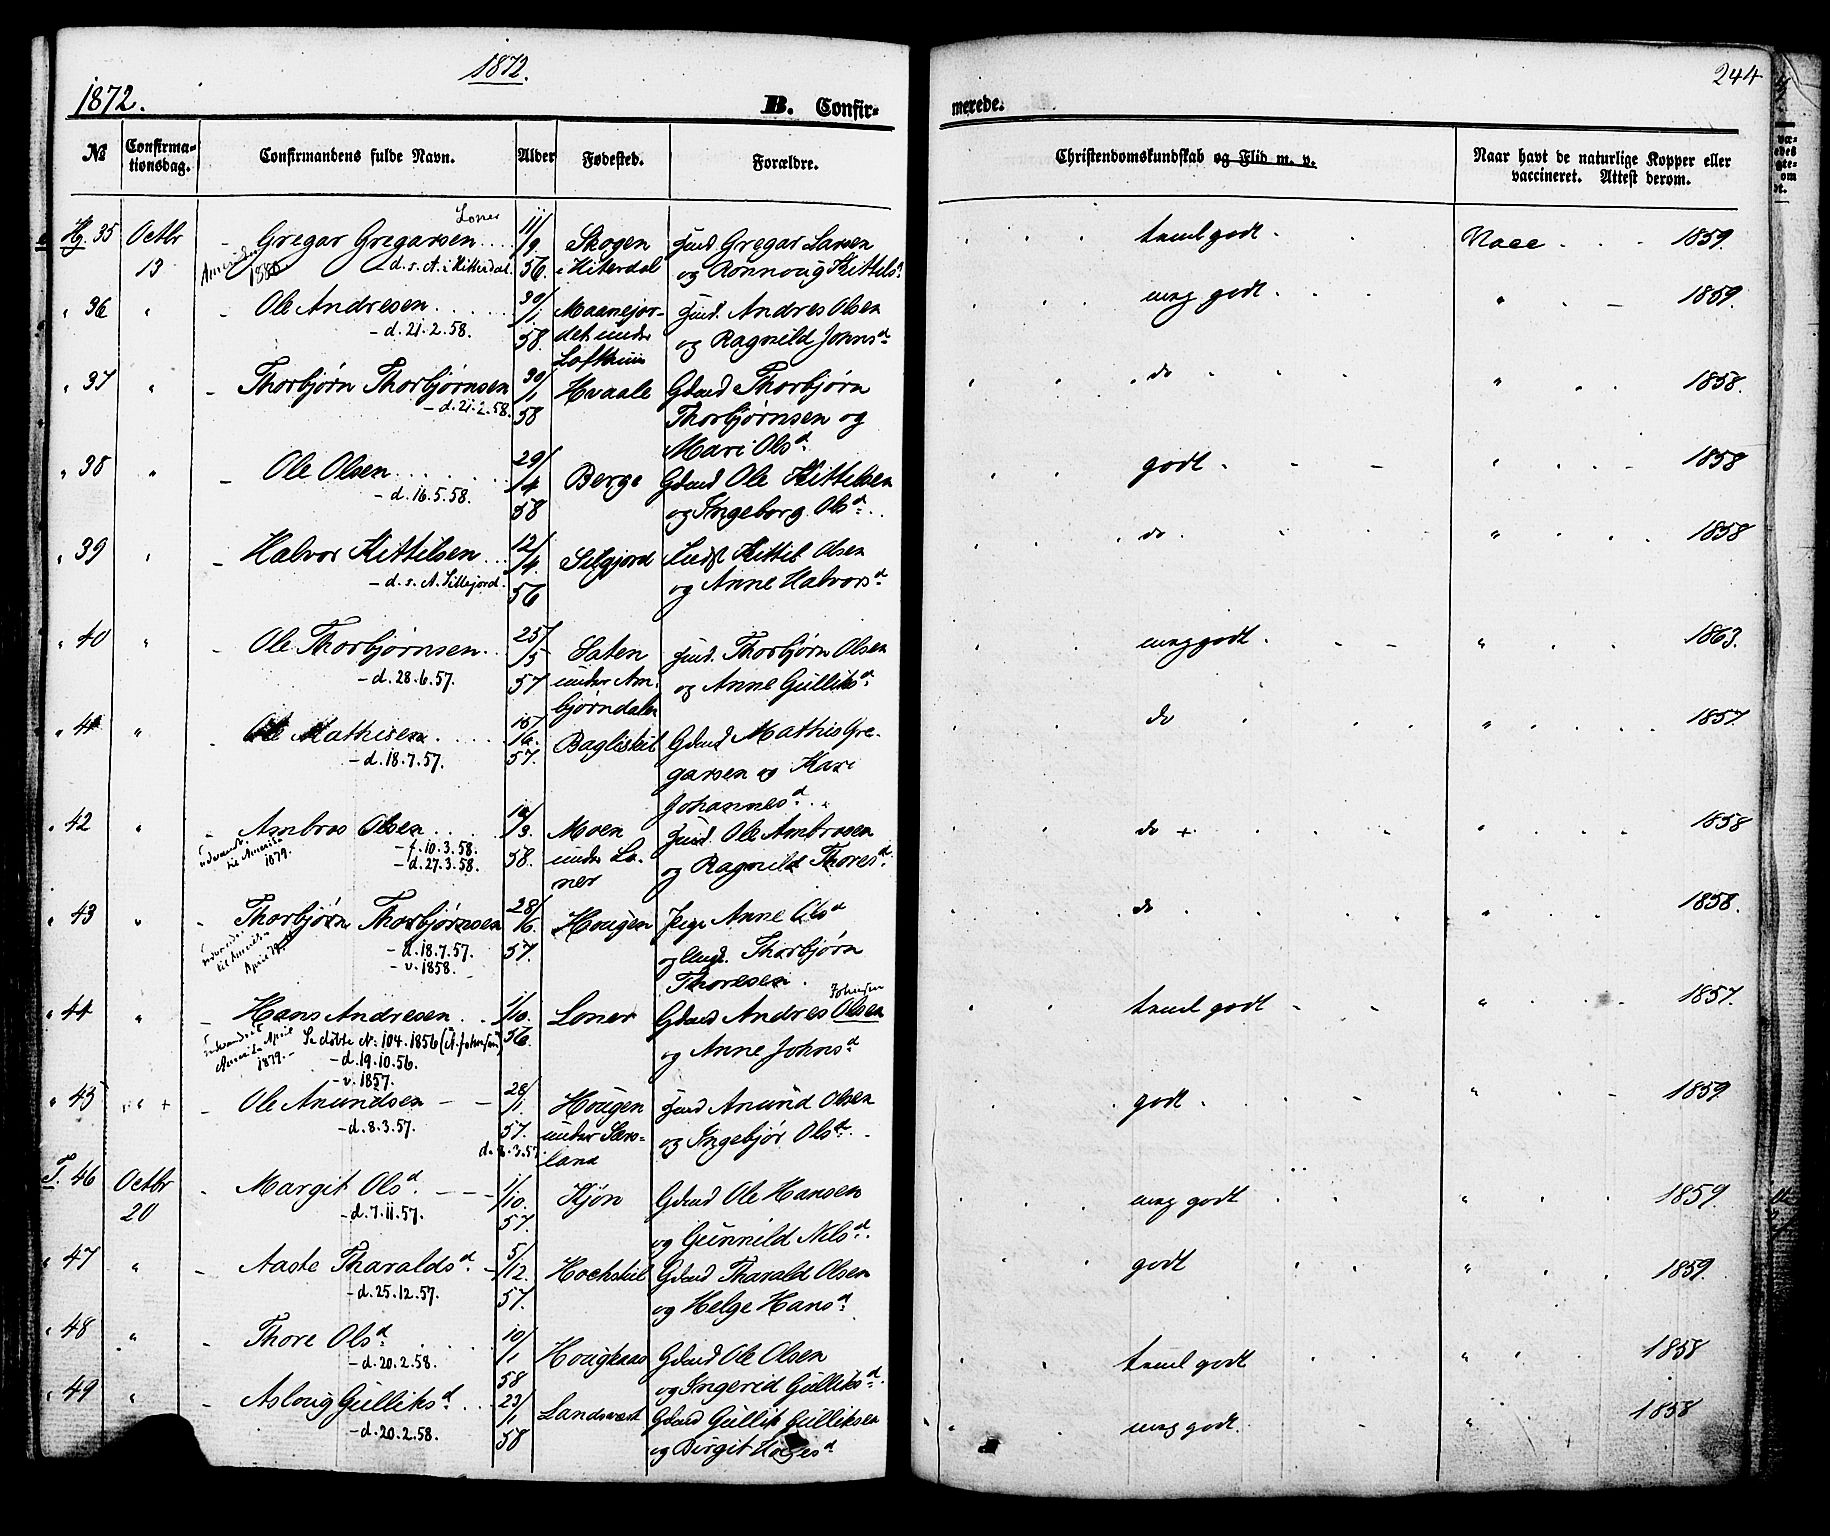 1872.
1872.
B. Confir-
merede.
244
№
Confirma-
tionsdag.
Confirmandens fulde Navn.
Alder
Fødested.
Forældre.
Christendomskundskab og Flid m. v.
Naar havt de naturlige Kopper eller
vaccineret. Attest derom.
Hg. 35 Octbr - Gregar Gregarsen Loner 11/ Skogen Gregar Larsen temlgodt. Vacc 1859.
13 1880 - d. s. A. i Hitterdal. 9 56 i Hiterdal og Rønnoug Kittilsd.
" 36 " - Ole Andresen 30/1 Maanejor- Andres Olsen meg godt " 1859.
- d. 21.2.58. 58. det under og Ragnild Johnsd.
Lofthuus
" 37 " - Thorbjørn Thorbjørnsen 30/1 Hvaale Gdmd Thorbjørn do " 1858.
- d. 21.2.58. 58 Thorbjørnsen og
Mari Olsd.
" 38 " - Ole Olsen 29/4 Berge Gdmd Ole Kittelsen godt " 1858
- d. 16.5.58. 58 og Ingeborg Olsd.
" 39 " - Halvor Kittilsen 12/4. Selgjord Kittil Olsen do " 1858
- d. s. A. Sillejord. 56 og Anne Halvorsd.
" 40 " - Ole Thorbjørnsen 25/5 Saten Thorbjørn Olsen meggodt " 1863.
- d. 28.6.57. 57 under Am- og Anne Gulliksd.
bjørndalen
" 41 " - Ole Mathisen 15/6. Bagliskil Gdmd Mathis Gre- do " 1857
- d. 18.7.57. 57. garsen og Kari
Johannesd.
" 42 " - Ambros Olsen /3. Moen Ole Ambrosen do + " 1858
til Amerika 1879. - f. 10.3.58. 58. under Lo- og Ragnild Thoresd.
- d. 27.3.58. ner
" 43 " - Thorbjørn Thorbjørnsen 28/6. Hougen Pige Anne Olsd do " 1858.
til Amerika April - d. 18.7.57. 57. og Ungk. Thorbjørn
- v. 1858. Thoresen.
" 44 " - Hans Andresen 1/10. Loner Gdmd Andres Olsen Johnsen temlgodt " 1857.
Amerika April 1879. - Se døbte N: 104. 1856 (A. Johnsen) 56. og Anne Johnsd
- d. 19.10.56.
- v. 1857.
" 45 " + - Ole Anundsen 28/1. Hougen Anund Olsen godt " 1859
- d. 8.3.57. 57. under Søre- og Ingebjør Olsd.
d. 8.3.57. land
46 Octbr - Margit Olsd. 1/10. Kjøn Gdmd Ole Hansen meg godt " 1859.
20 - d. 7.11.57. 57. og Gunnild Nilsd.
" 47 " - Aaste Tharaldsd. 5/12. Hochskil Gdmd Tharald Olsen godt " 1859.
- d. 25.12.57. 57. og Helge Hansd.
" 48 " - Thore Olsd. 10/1 Hougkaas Gdmd Ole Olsen temlgodt " 1858
- d. 20.2.58. 58 og Ingerid Gulliksd.
" 49 " - Asloug Gulliksd. 23/1 Landsverk Gdmd Gullik Gulliksen meg godt. " 1858
- d. 20.2.58. 58 og Birgit